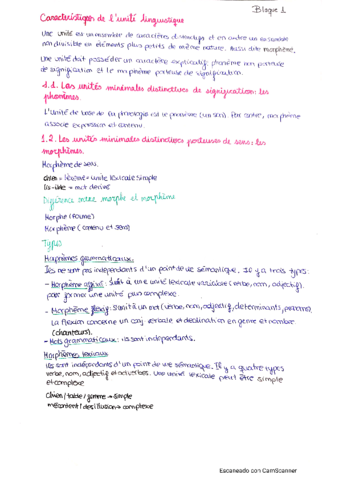 Bloque 1
Caractéristiques de l'unité linguistique
Une unité est un marqueur de caractères et en outre un ensemble
non divisible en éléments plus petits de même nature. Aussi dite morphème.
Une unité doit posséder un caractère explicatif, phonème non porteuse
de signification et le morphème porteuse de signification.
1.1. Les unités minimales distinctives de signification: les
phonèmes.
L'unité de base de la phonologie est le phonème (un son). Par contre, morphème
associe expression et contenu.
1.2. Les unités minimales distinctives porteuses de sens: les
morphèmes.
Morphème de sens.
chien = lexème = unité lexicale simple
lis-ible → mot dérivé
Différence entre morphe et morphème
Morphe (forme)
Morphème (contenu et sens)
Types
Morphèmes grammaticaux:
Ils ne sont pas indépendants d'un point de vue sémantique. Il y a trois types:
- Morphème affixal: suit à une unité lexicale variable (verbe, nom, adjectif).
pour former une unité plus complexe.
- Morphème flexif: s'unit à un mot (verbe, nom, adjectif, déterminants, pronoms).
La flexion concerne un conj verbale et déclination en genre et nombre
(chanteurs).
- Mots grammaticaux: ils sont indépendants.
Morphèmes lexicaux
ils sont indépendants d'un point de vue sémantique. Il y a quatre types
verbe, nom, adjectif et adverbes. Une unité lexicale peut être simple
et complexe
Chien / table / gomme → simple
mécontent / desillusion → complexe
Escaneado con CamScanner